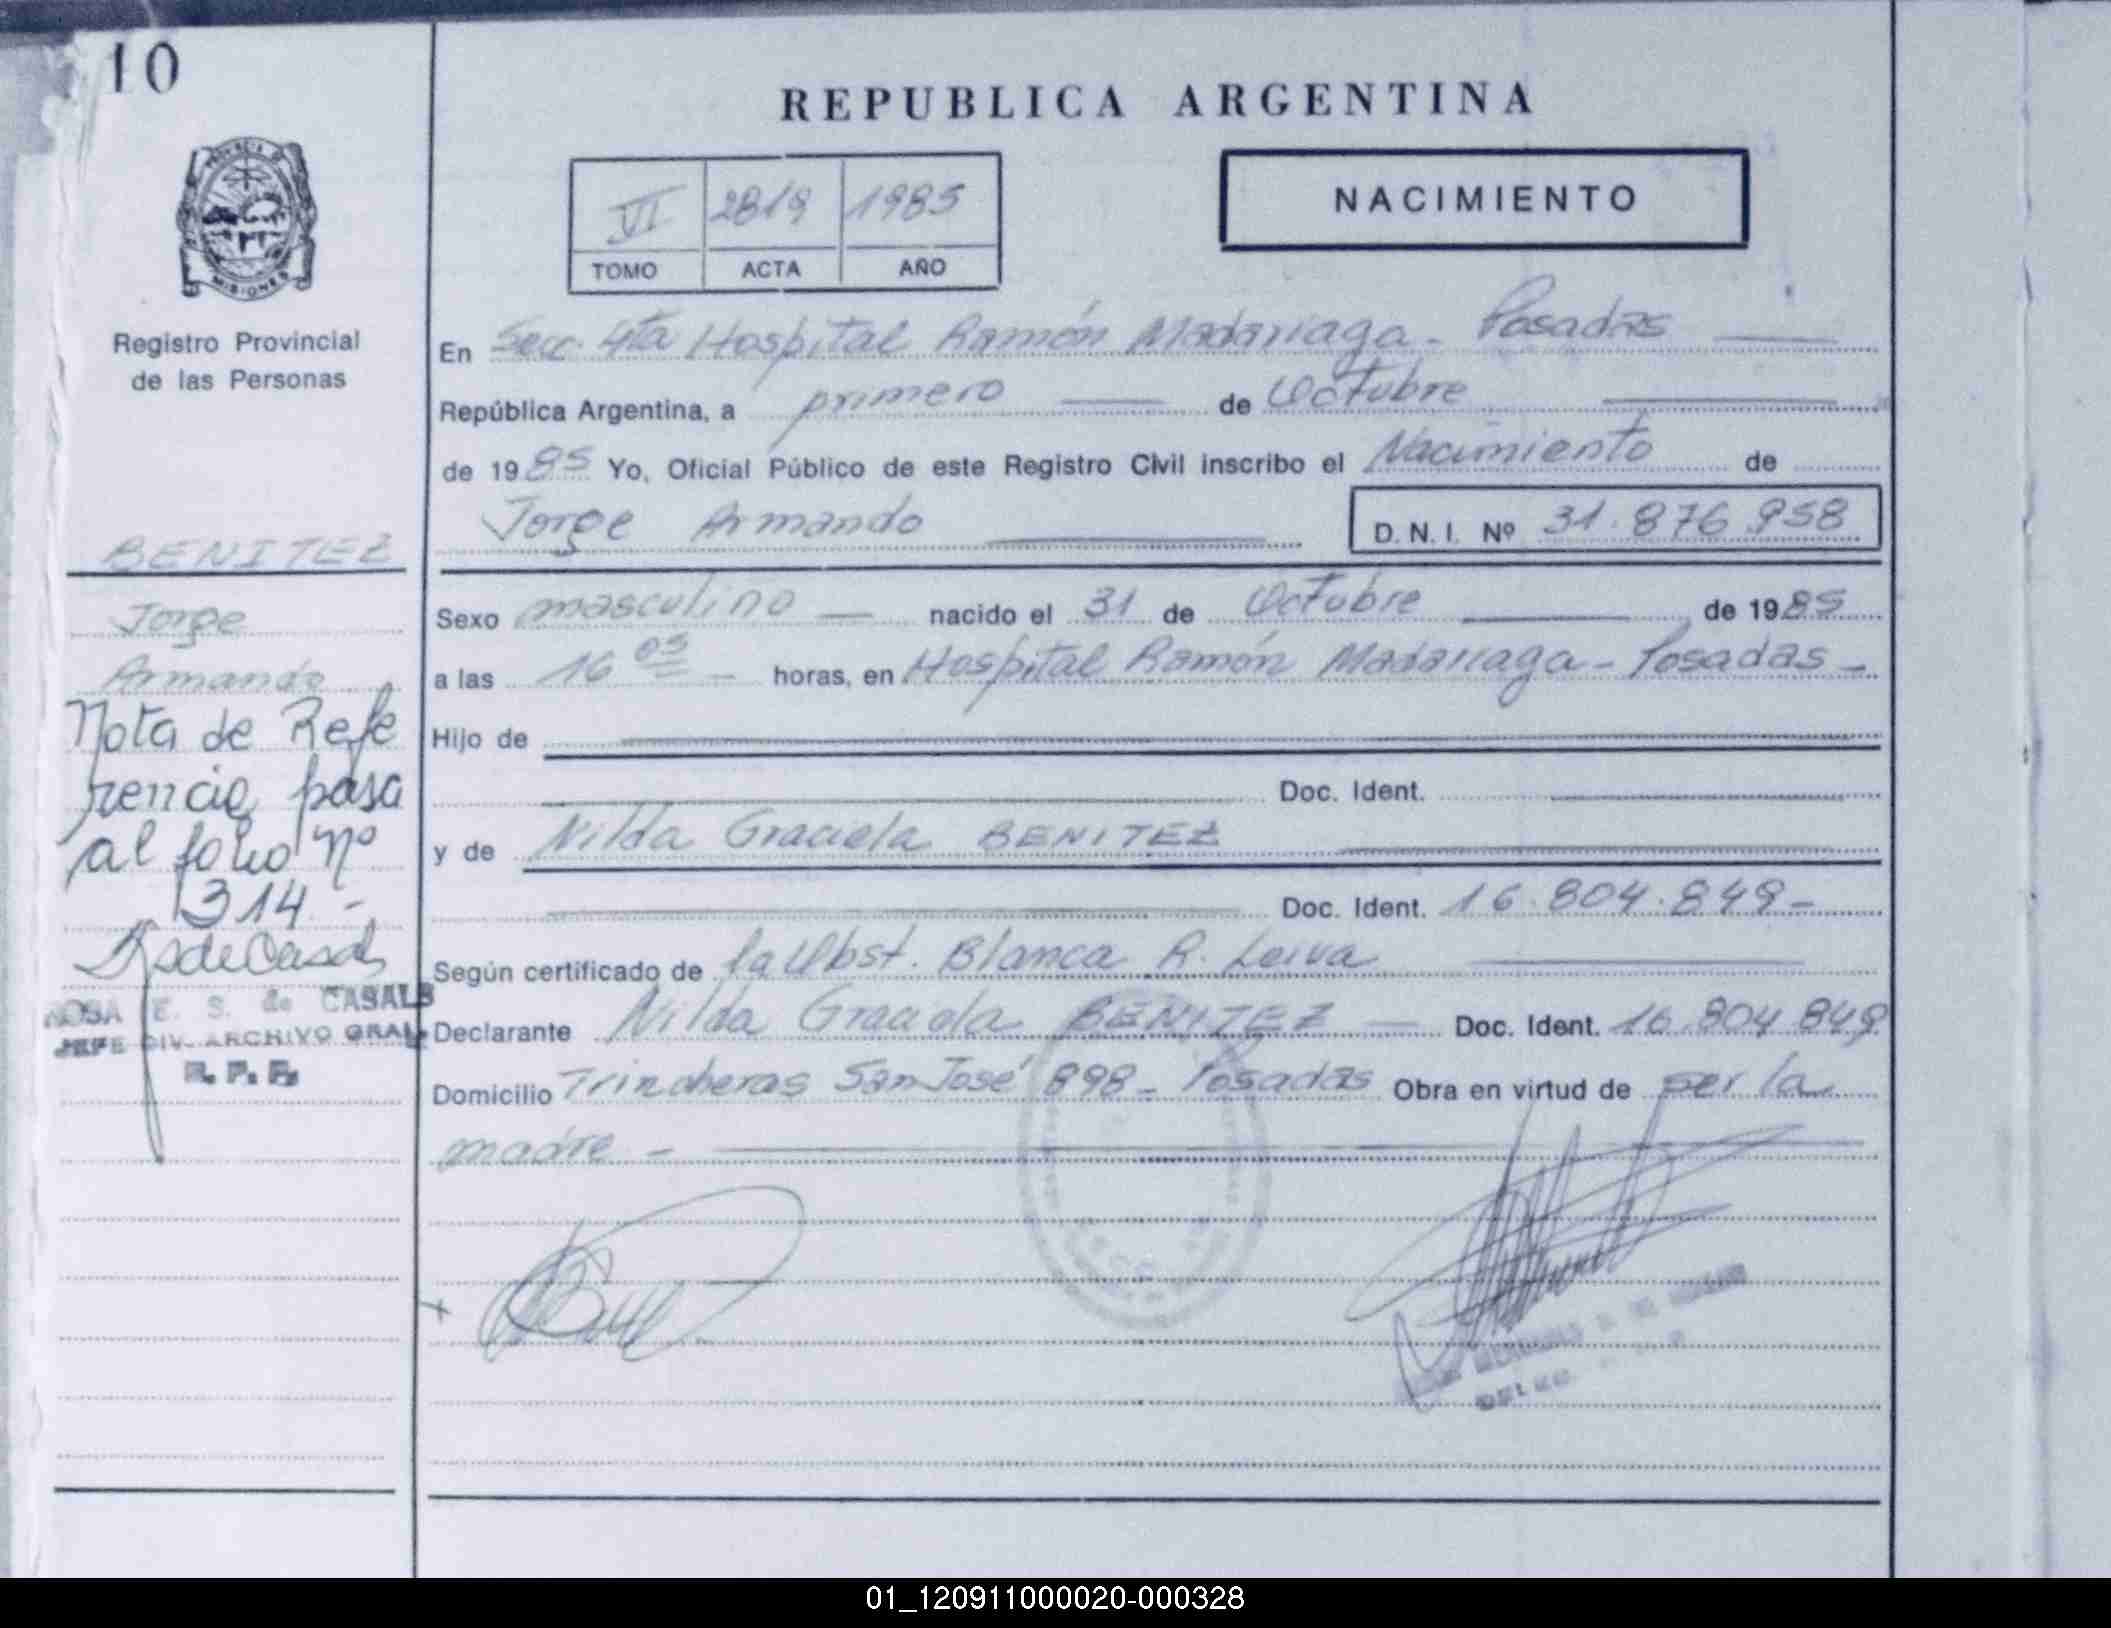 10
REPUBLICA ARGENTINA
PROVINCIA DE
MISIONES
VI 2819 1985
TOMO ACTA AÑO
NACIMIENTO
Registro Provincial
de las Personas
En Secc. 4ta Hospital Ramón Madariaga - Posadas
República Argentina, a primero de Octubre
de 1985 Yo, Oficial Público de este Registro Civil inscribo el Nacimiento de
Jorge Armando D. N. I. Nº 31.876.958
BENITEZ
Jorge
Armando
Nota de Refe
rencia pasa
al folio nº
314.-
ROSA E. S. de CASALS
JEFE DIV. ARCHIVO GRAL.
R. P. P.
Sexo masculino nacido el 31 de Octubre de 1985
a las 16 05 horas, en Hospital Ramón Madariaga - Posadas -
Hijo de
Doc. Ident.
y de Nilda Graciela BENITEZ
Doc. Ident. 16.804.849-
Según certificado de la Obst. Blanca R. Leiva
Declarante Nilda Graciela BENITEZ Doc. Ident. 16.804.849
Domicilio Trincheras San José 898 - Posadas Obra en virtud de ser la
madre -
01_120911000020-000328